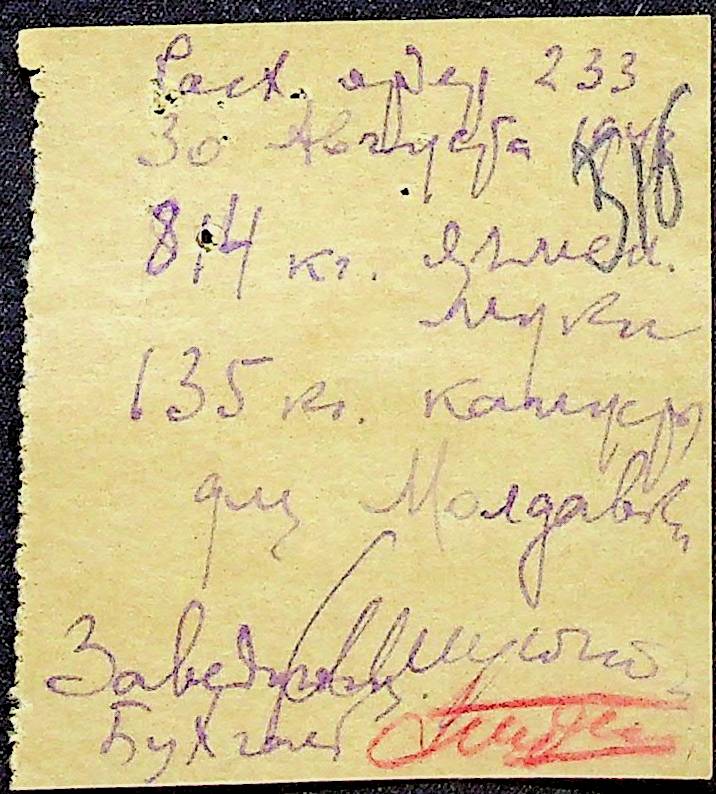 Расх. ордер 233
30 Августа
516
814 кг. ячмен.
муки
135 кг.
для Молдавки
Заведующ.
Бухгалт